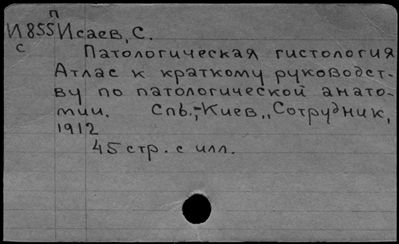 П
И855 Исаев, С.
С Патологическая гистология
Атлас к краткому руководст-
ву по патологической анато-
мии. Спб.,-Киев, „Сотрудник,
1912
45 стр. с илл.